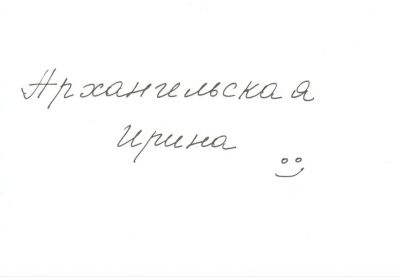 Архангельская
Ирина